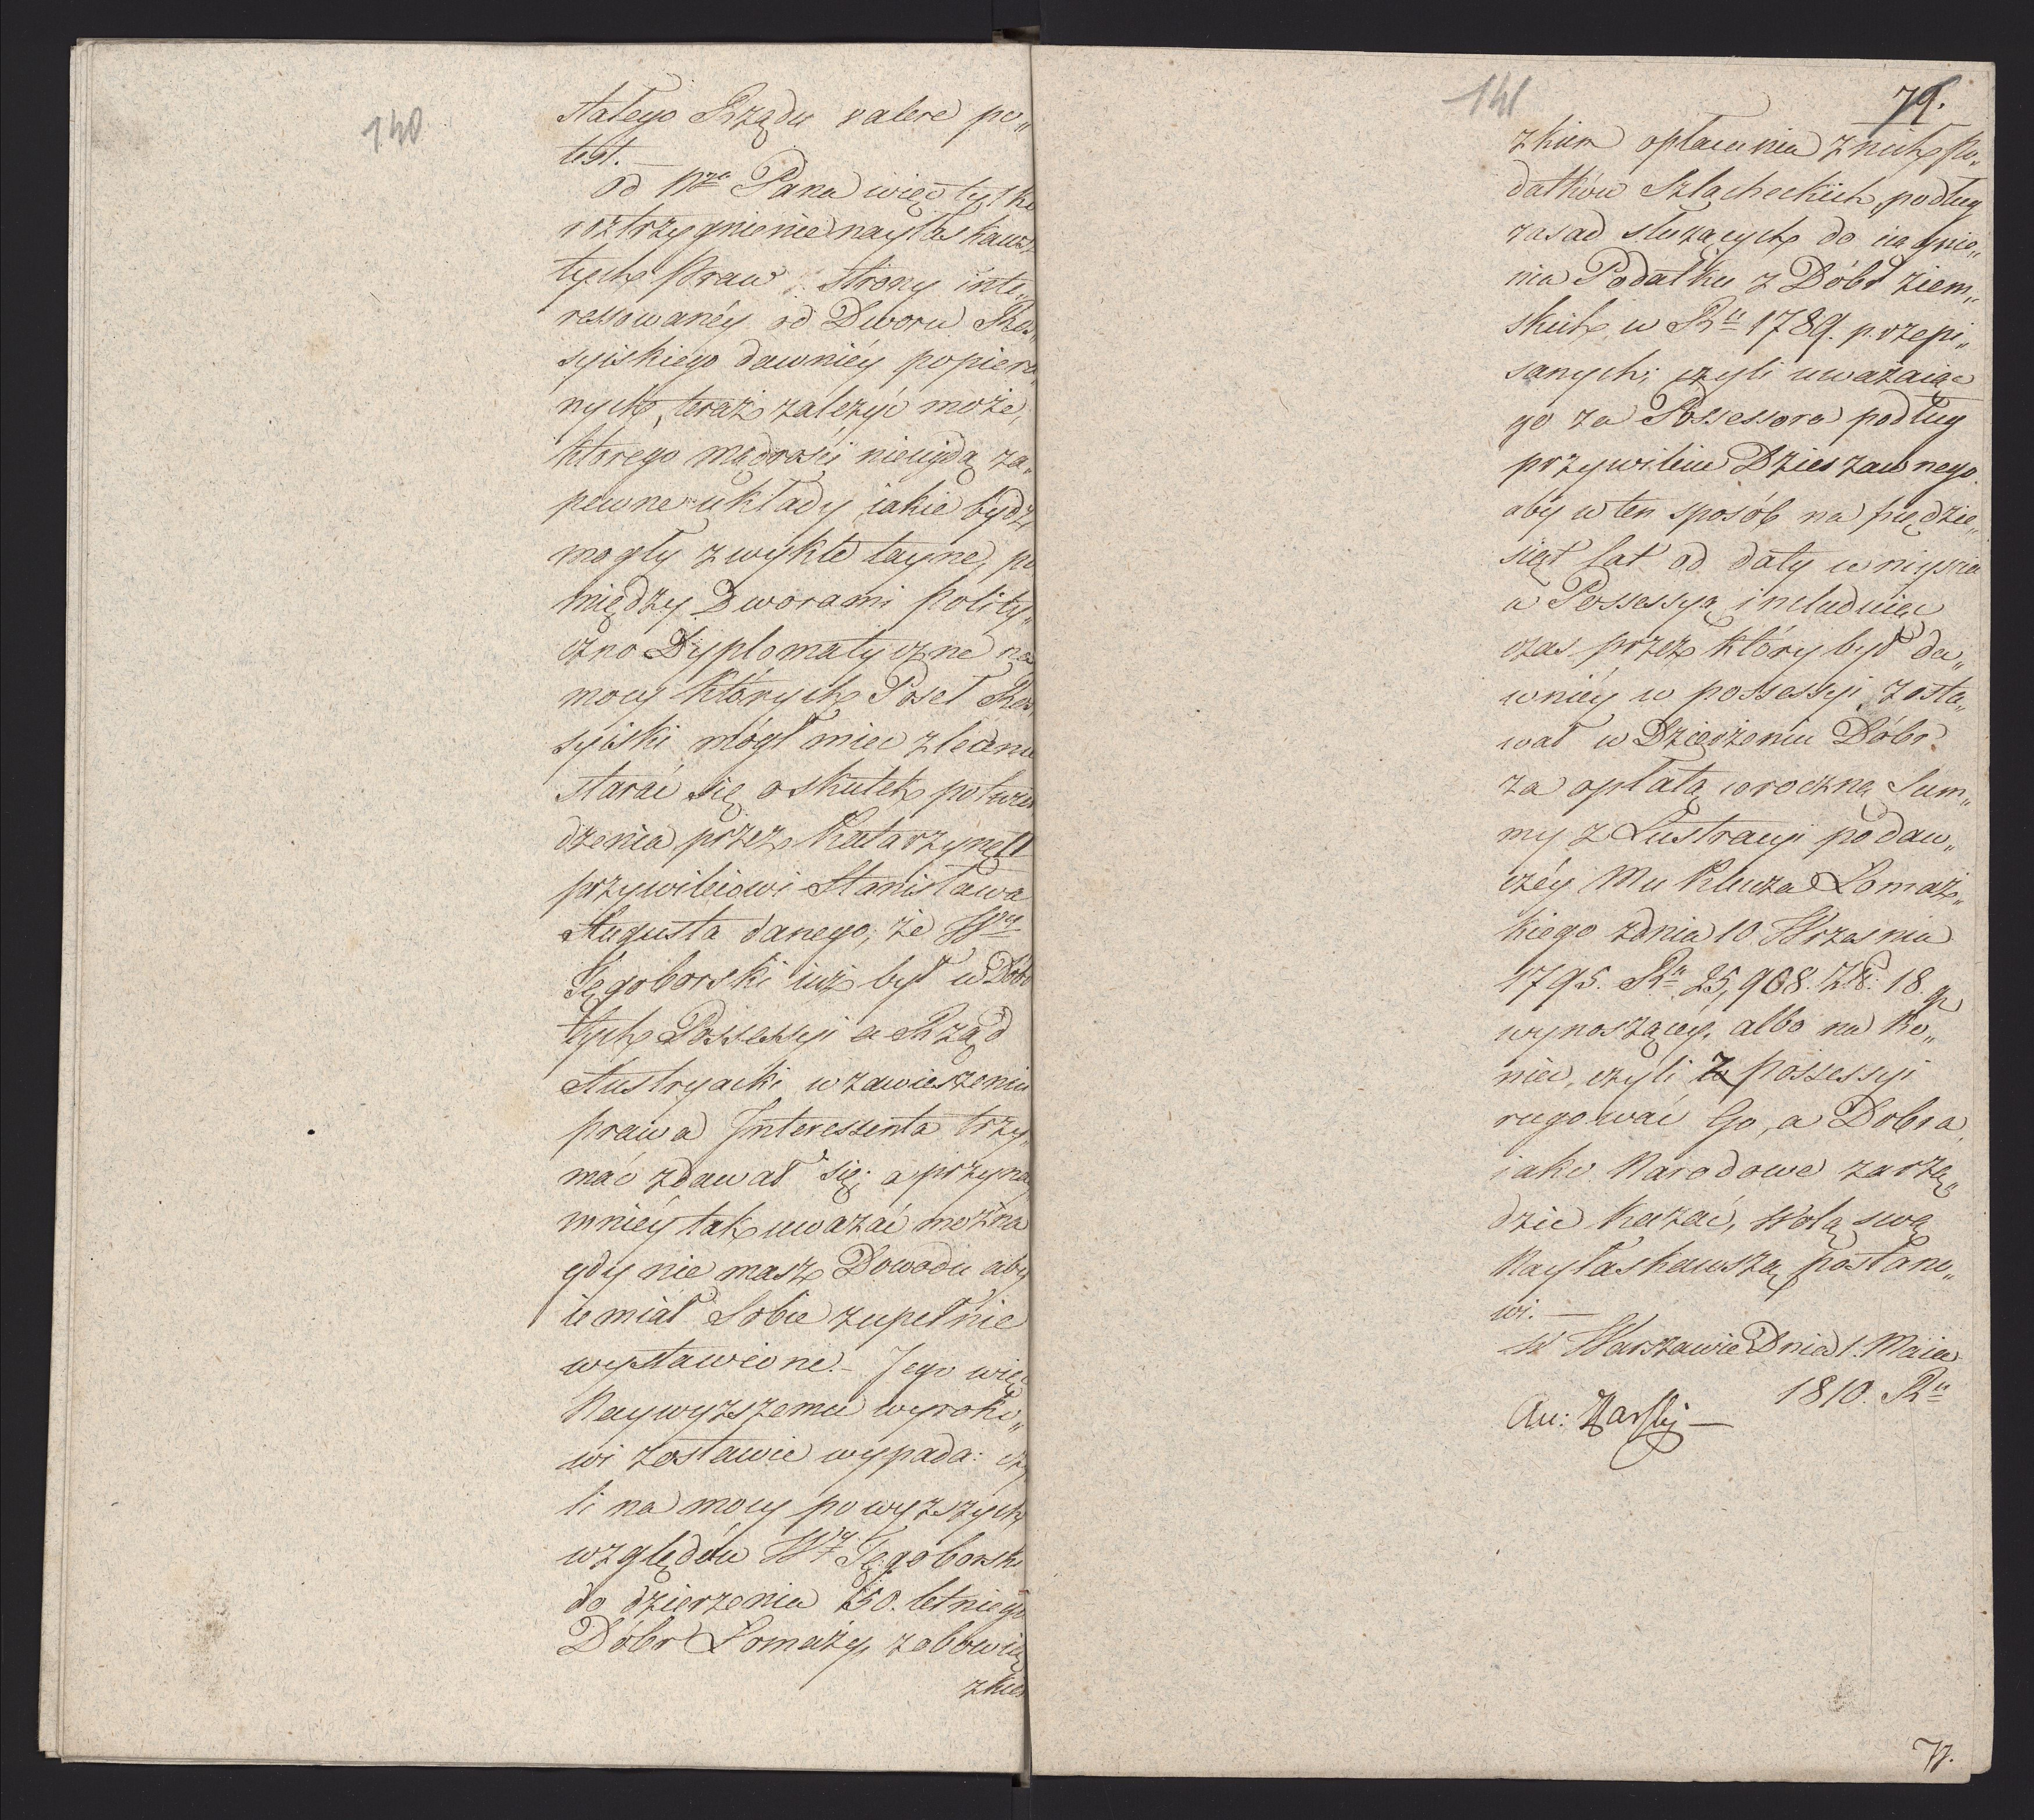 140
stałego Rządu valere po„
test. —
Od Nzo Pana więc tylko
roztrzygnienie nayłaskawsze
tych Praw strony inte„
ressowanéy od Dworu Ros„
syiskiego dawniéy popiera„
nych, teraz zależyć może,
którego mądrości nieuydą za„
pewne układy iakie bydź
mogły zwykle tayne, po
między Dworami Polity„
czno Dyplomatyczne na
mocy których Poseł Ros
syiski mógł mieć zlecenie
starać się o skutek potwier
dzenia przez Katarzynę II
przywileiowi Stanisława
Augusta danego, że Wny
Tęgoborski iuż był w Dóbr
tych Possessyi a Rząd
Austryacki w zawieszeniu
prawa Interessenta trzy„
mać zdawał się; a przynay
mniéy tak uważać można
gdy nie masz Dowodu aby
ie miał Sobie zupełnie
wystawione. — Jego więc
Naywyższemu wyroko„
wi zostawić wypada: czy
li na mocy powyższych
względów Wy Tęgoborski
do dzierżenia 50. letniego
Dóbr Łomazy, zobowią
zkiem
141
79.
zkiem opłacenia z nich Po„
datków Szlacheckich, podług
zasad służących do ciągnie„
nia Podatku z Dóbr ziem„
skich w Ru 1789. przepi„
sanych; czyli uważaiąc
go za Possessora podług
przywileiu Dzierżawnego.
aby w ten sposób na pięćdzie„
siąt lat od daty wniyścia
w Possessyą includuiąc
czas przez który był da„
wniéy w possessyi, zosta„
wał w Dzierżeniu Dóbr
za opłatą coroczną Sum„
my z Lustracyi podaw„
czéy Mu Klucza Łomaz„
kiego z dnia 10 Września
1795. Ru 25,968. Zł: 18. gr
wynoszącéy, albo na ko„
niec, czyli z possessyi
rugować Go, a Dobra,
iako Narodowe zarzą„
dzić kazać, Wolą swą
Nayłaskawszą postano„
wi. —
w Warszawie Dnia 1. Maia
1810. Ru
77.